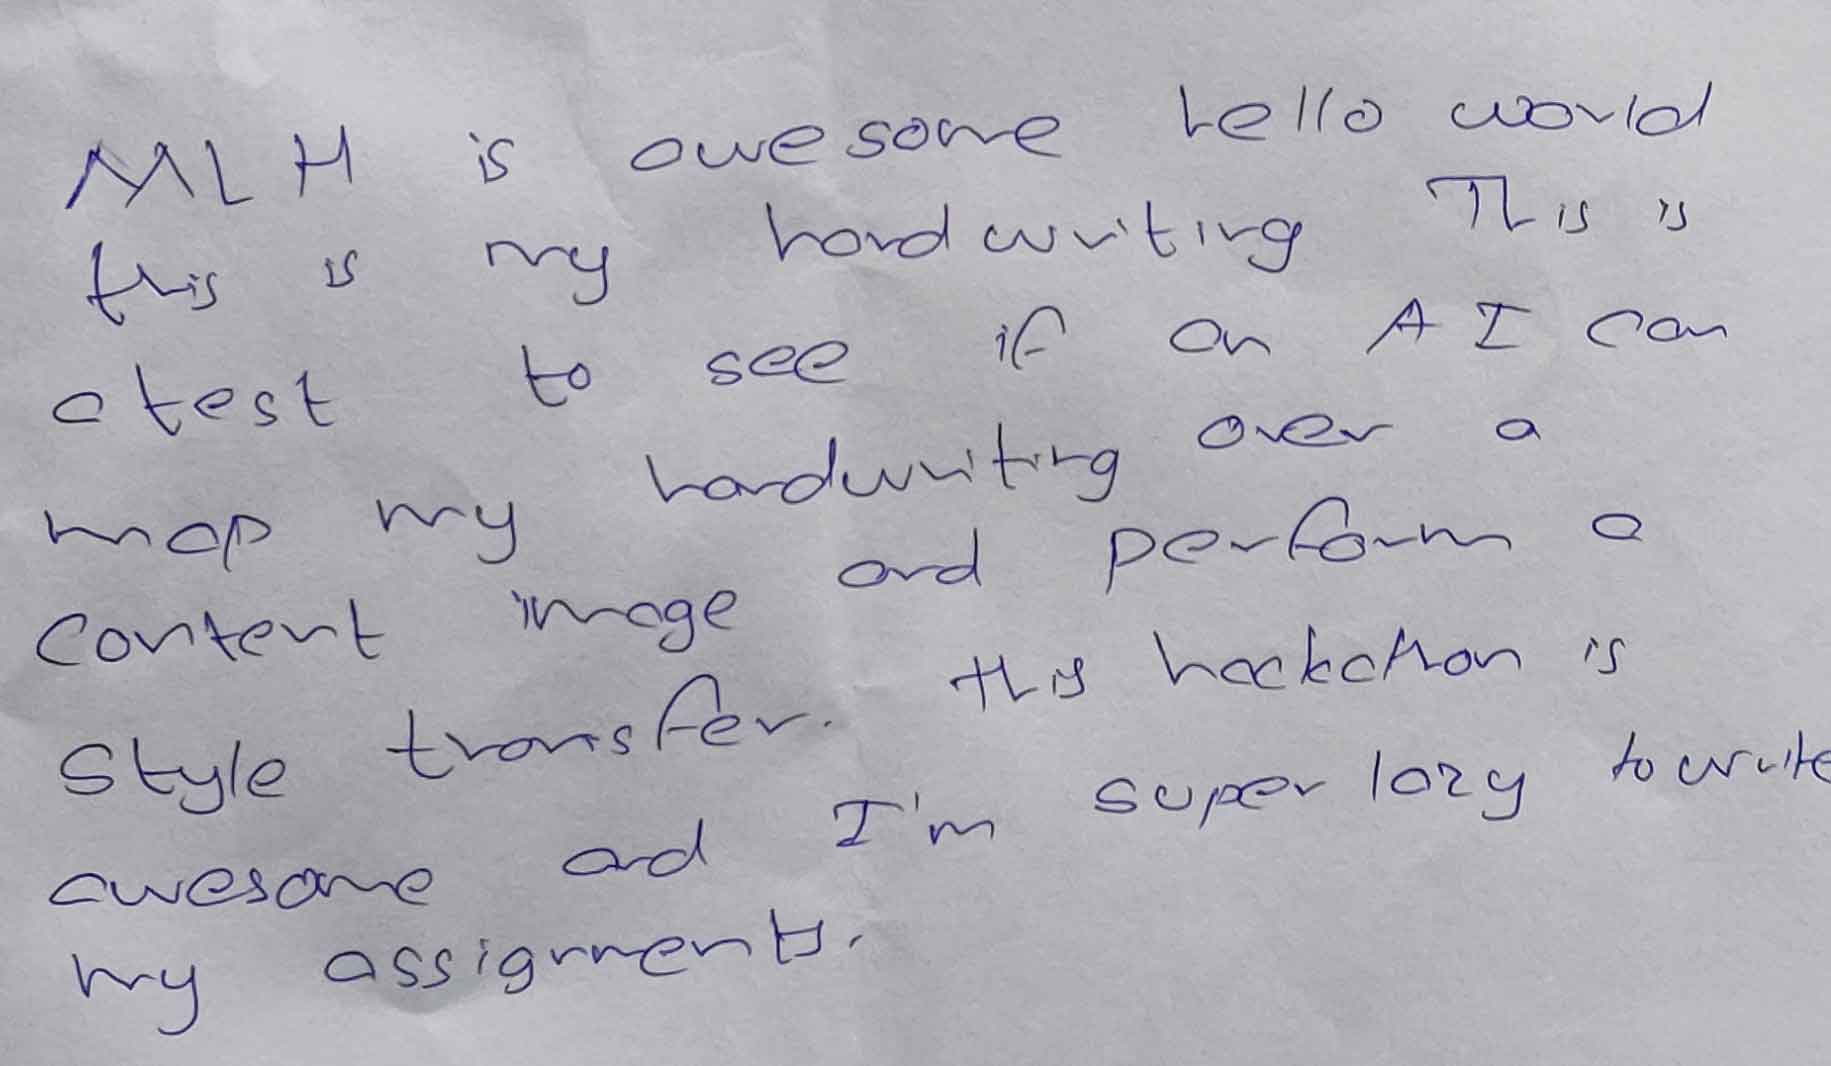 MLH is awesome hello world
this is my handwriting This is
a test to see if an AI can
map my handwriting over a
content image and perform a
style transfer. this hackathon is
awesome and I'm super lazy to write
my assignments.